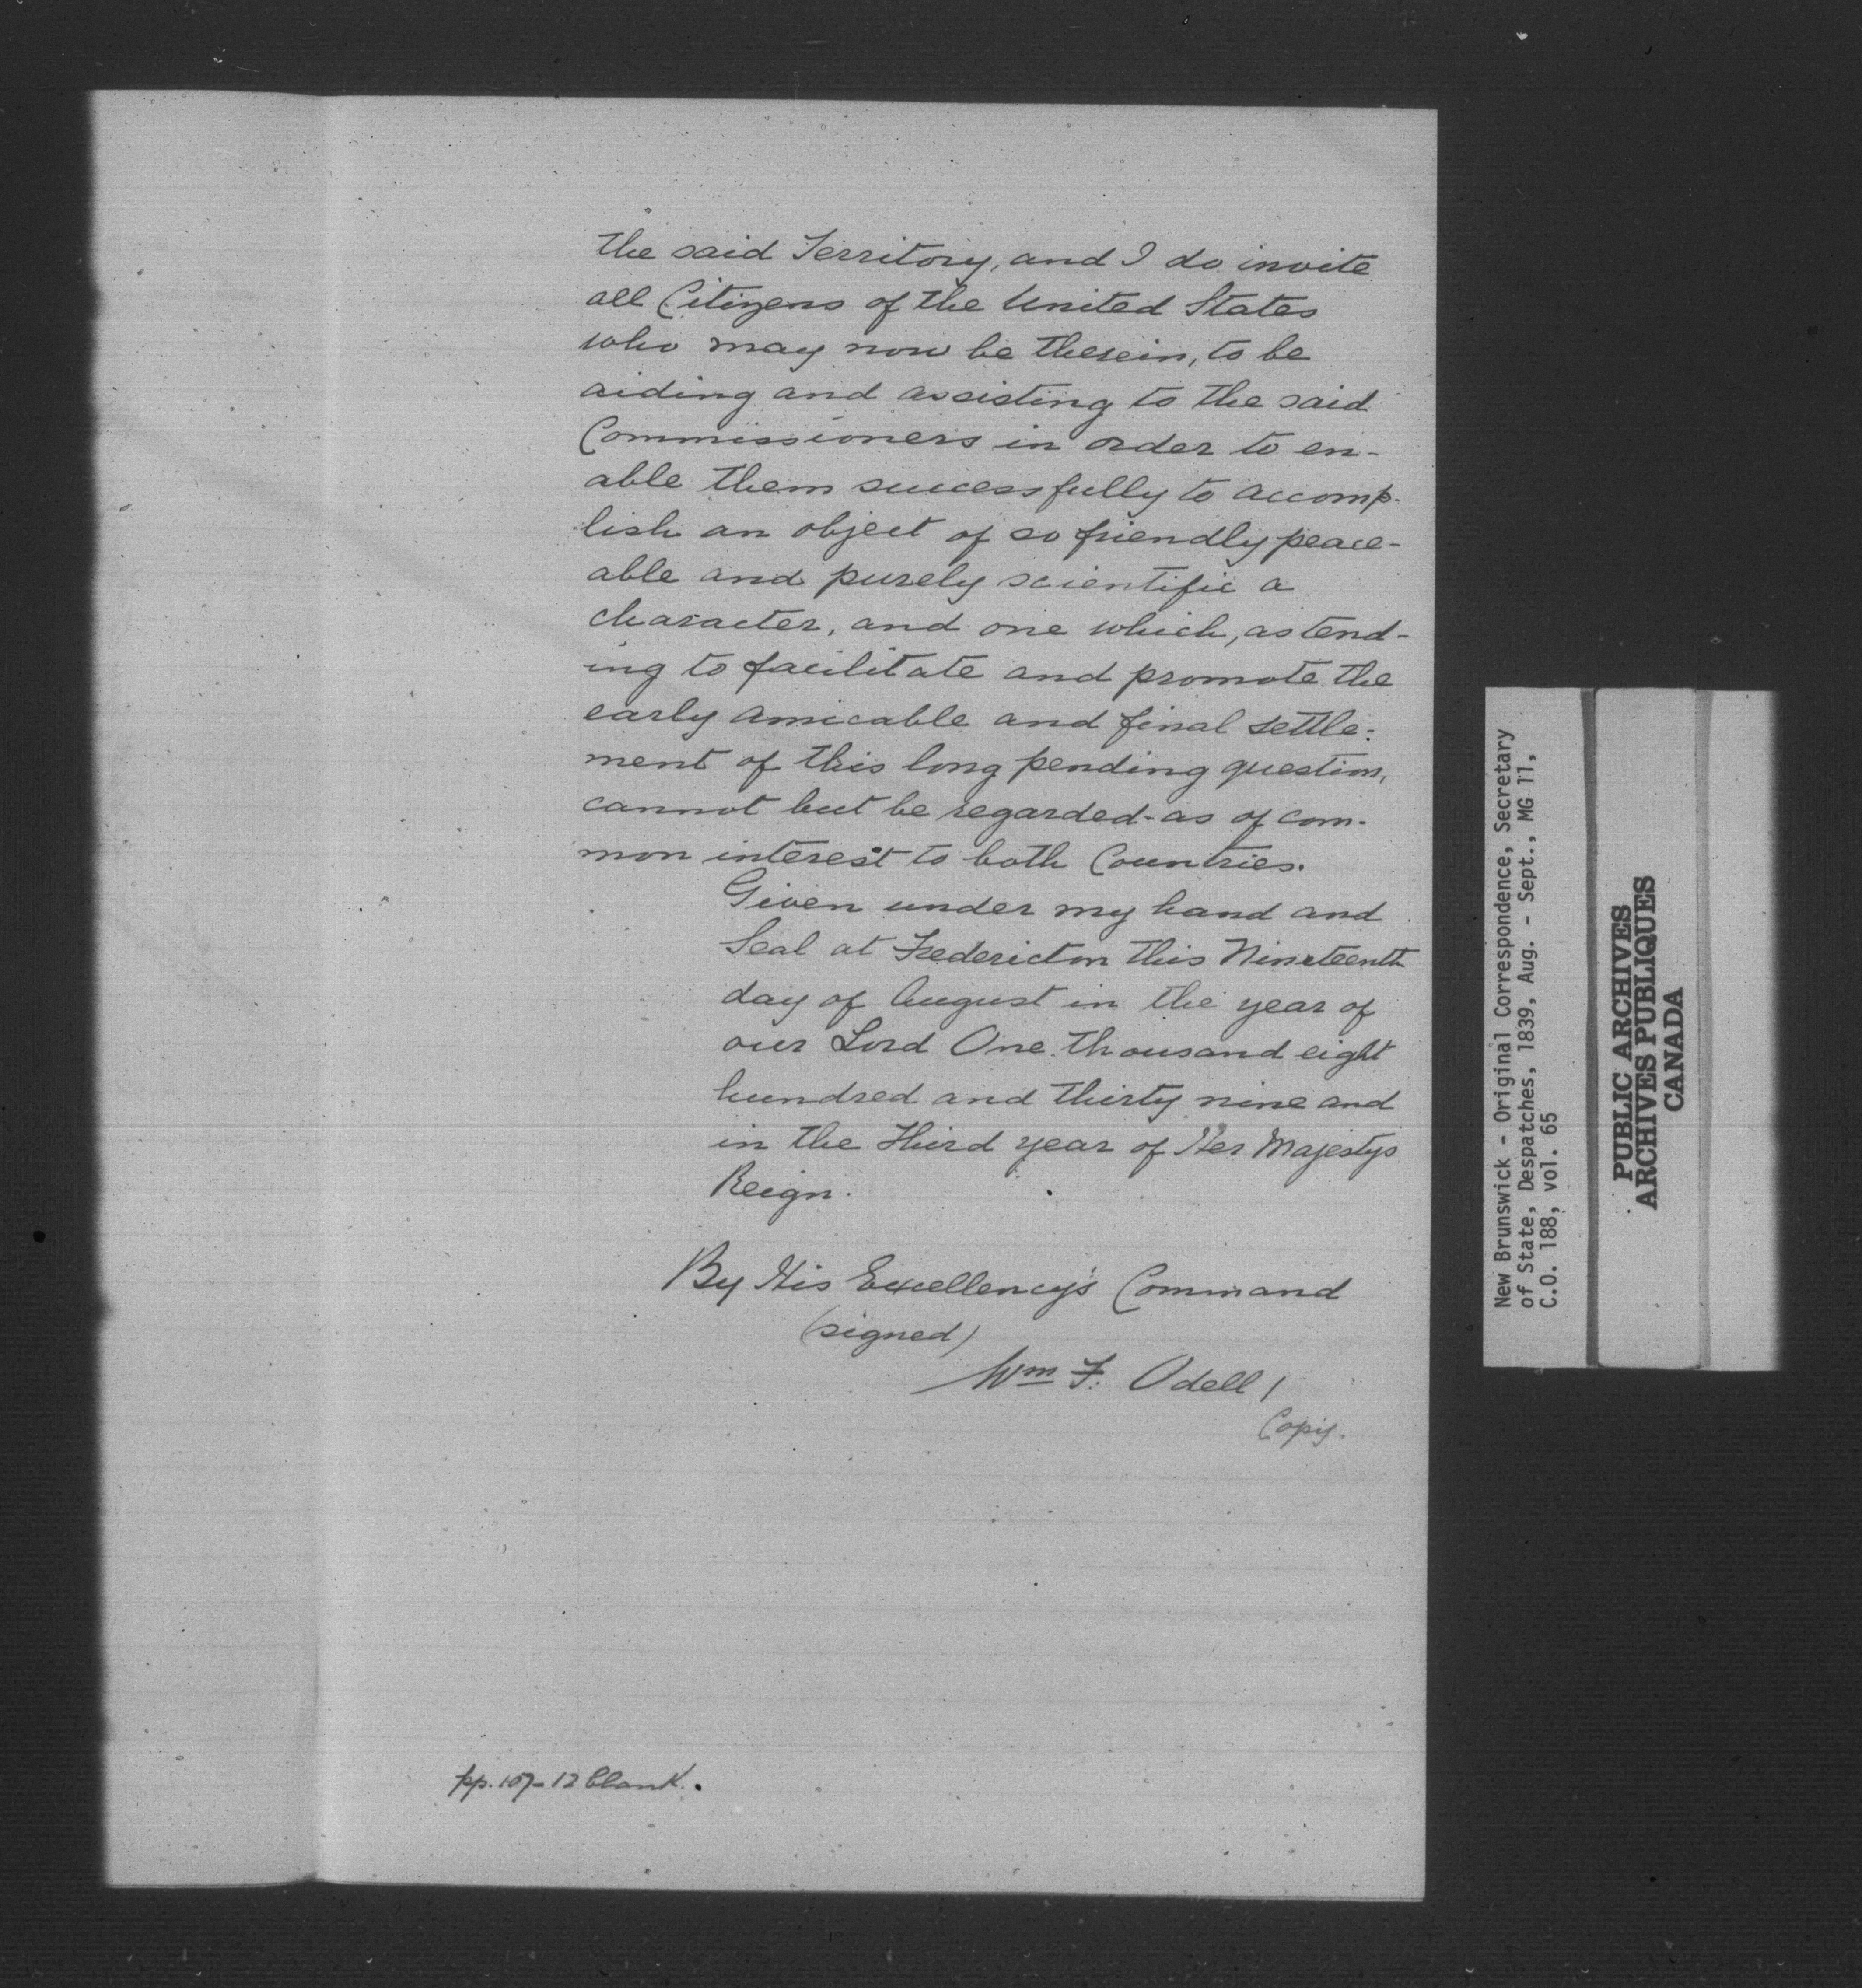 the said Territory, and I do invite
all Citizens of the United States
who may now be therein, to be
aiding and assisting to the said
Commissioners in order to en-
able them successfully to accomp-
lish an object of so friendly peace-
able and purely scientific a
character, and one which, as tend-
ing to facilitate and promote the
early amicable and final settle-
ment of this long pending question,
cannot but be regarded as of com-
mon interest to both Countries.
Given under my hand and
Seal at Fredericton this Nineteenth
day of August in the year of
our Lord One thousand eight
hundred and thirty nine and
in the Third year of Her Majestys
Reign.
By His Excellency's Command
(signed)
Wm F. Odell /
Copy.
pp. 107-12 blank.
New Brunswick - Original Correspondence, Secretary
of State, Despatches, 1839, Aug. - Sept., MG 11,
C.O. 188, vol. 65
PUBLIC ARCHIVES
ARCHIVES PUBLIQUES
CANADA